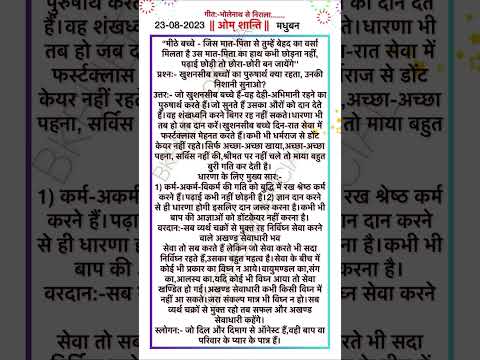 गीत:-भोलेनाथ से निराला......
23-08-2023 || ओम् शान्ति || मधुबन
"मीठे बच्चे - जिस मात-पिता से तुम्हें बेहद का वर्सा
मिलता है उस मात-पिता का हाथ कभी छोड़ना नहीं,
पढ़ाई छोड़ी तो छोरा-छोरी बन जायेंगे"
प्रश्न:- खुशनसीब बच्चों का पुरुषार्थ क्या रहता, उनकी
निशानी सुनाओ?
उत्तर:- जो खुशनसीब बच्चे हैं-वह देही-अभिमानी रहने का
पुरुषार्थ करते हैं।जो सुनते हैं उसका औरों को दान देते
हैं।वह शंखध्वनि करने बिगर रह नहीं सकते।धारणा भी
तब हो जब दान करें।खुशनसीब बच्चे दिन-रात सेवा में
फर्स्टक्लास मेहनत करते हैं।कभी भी धर्मराज से डोंट
केयर नहीं रहते।सिर्फ अच्छा-अच्छा खाया,अच्छा-अच्छा
पहना, सर्विस नहीं की,श्रीमत पर नहीं चले तो माया बहुत
बुरी गति कर देती है।
धारणा के लिए मुख्य सार:-
1) कर्म-अकर्म-विकर्म की गति को बुद्धि में रख श्रेष्ठ कर्म
करने हैं।पढ़ाई कभी नहीं छोड़नी है।2) ज्ञान दान करने
से ही धारणा होगी इसलिए दान जरूर करना है।कभी भी
बाप की आज्ञाओं को डोंटकेयर नहीं करना है।
वरदान:-सब व्यर्थ चक्रों से मुक्त रह निर्विघ्न सेवा करने
वाले अखण्ड सेवाधारी भव
सेवा तो सब करते हैं लेकिन जो सेवा करते भी सदा
निर्विघ्न रहते हैं,उसका बहुत महत्व है।सेवा के बीच में
कोई भी प्रकार का विघ्न न आये।वायुमण्डल का,संग
का,आलस्य का,यदि कोई भी विघ्न आया तो सेवा
खण्डित हो गई।अखण्ड सेवाधारी कभी किसी विघ्न में
नहीं आ सकते।जरा संकल्प मात्र भी विघ्न न हो।सब
व्यर्थ चक्रों से मुक्त रहो तब सफल और अखण्ड
सेवाधारी कहेंगे।
स्लोगन:- जो दिल और दिमाग से ऑनेस्ट हैं,वही बाप वा
परिवार के प्यार के पात्र हैं।